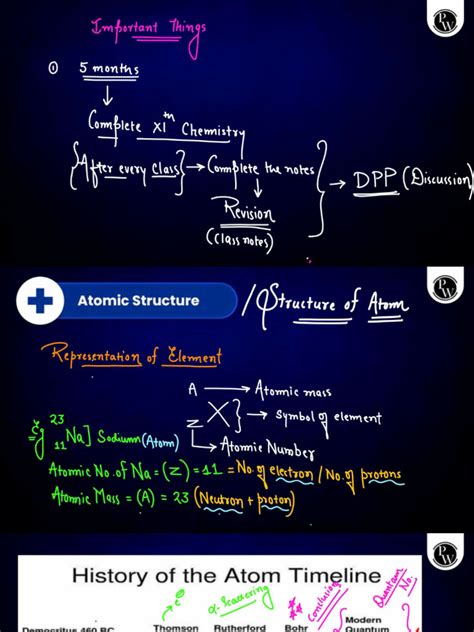 Important Things
PW
① 5 months
↓
Complete XIth Chemistry
{After every class} → Complete the notes
↓
Revision
(class notes)
} → DPP (Discussion)
Atomic Structure
/ Structure of Atom
PW
Representation of Element
A → Atomic mass
X } → Symbol of element
Z
↳ Atomic Number
Eg 23 11 Na] Sodium (Atom)
Atomic No. of Na = (Z) = 11 = No. of electron / No. of protons
Atomic Mass = (A) = 23 (Neutron + proton)
PW
History of the Atom Timeline
e⊖
α-Scattering
Conclusions
Quantum No.
Democritus 460 BC
Thomson
Rutherford
Bohr
Modern
Quantum